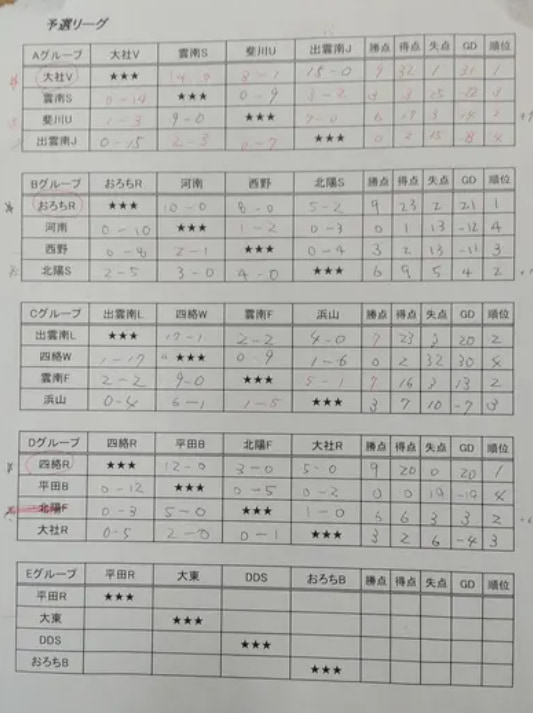 予選リーグ
Aグループ 大社V 雲南S 斐川U 出雲南J 勝点 得点 失点 GD 順位
大社V ★★★ 14-0 3-1 15-0 9 32 1 31 1
雲南S 0-14 ★★★ 0-9 3-2 3 3 25 3
斐川U 1-3 9-0 ★★★ 7-0 6 17 3 14 2
出雲南J 0-15 2-3 0-7 ★★★ 0 2 4
Bグループ おろちR 河南 西野 北陽S 勝点 得点 失点 GD 順位
おろちR ★★★ 10-0 8-0 5-2 9 23 2 21 1
河南 0-10 ★★★ 1-2 0-3 0 1 13 -12 4
西野 0-8 2-1 ★★★ 0-4 3 2 13 -11 3
北陽S 2-5 3-0 4-0 ★★★ 6 9 5 4 2
Cグループ 出雲南L 四絡W 雲南F 浜山 勝点 得点 失点 GD 順位
出雲南L ★★★ 17-1 2-2 4-0 7 23 3 20 2
四絡W 1-17 ★★★ 0-9 1-6 0 2 32 30 4
雲南F 2-2 9-0 ★★★ 5-1 7 16 3 13 2
浜山 0-4 6-1 1-5 ★★★ 3 7 10 -7 3
Dグループ 四絡R 平田B 北陽F 大社R 勝点 得点 失点 GD 順位
四絡R ★★★ 12-0 3-0 5-0 9 20 0 20 1
平田B 0-12 ★★★ 0-5 0-2 0 0 19 -19 4
北陽F 0-3 5-0 ★★★ 1-0 6 6 3 3 2
大社R 0-5 2-0 0-1 ★★★ 3 2 6 -4 3
Eグループ 平田R 大東 DDS おろちB 勝点 得点 失点 GD 順位
平田R ★★★
大東 ★★★
DDS ★★★
おろちB ★★★